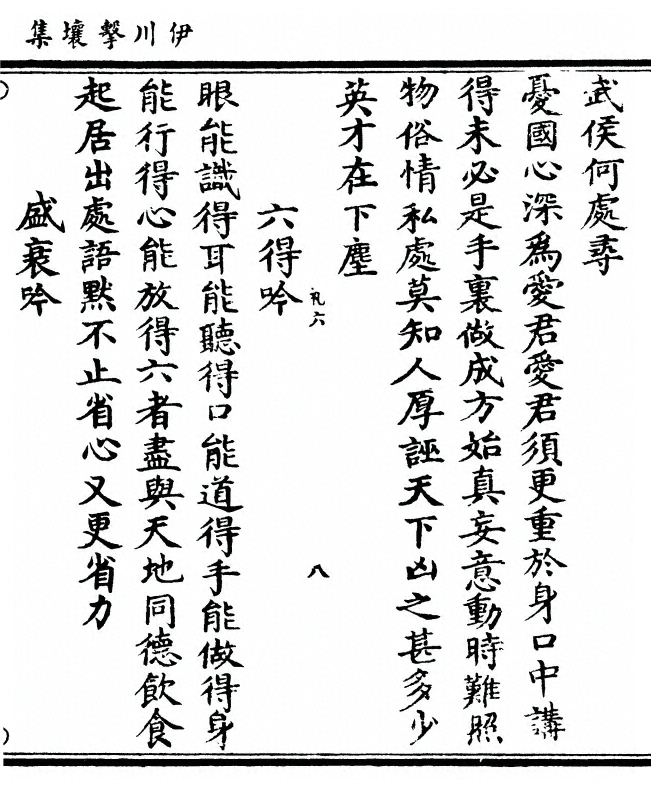 伊川擊壤集
武侯何處尋
憂國心深為愛君愛君須更重於身口中講
得未必是手裏做成方始真妄意動時難照
物俗情私處莫知人厚誣天下凶之甚多少
英才在下塵
礼六
八
六得吟
眼能識得耳能聽得口能道得手能做得身
能行得心能放得六者盡與天地同德飲食
起居出處語默不止省心又更省力
盛衰吟